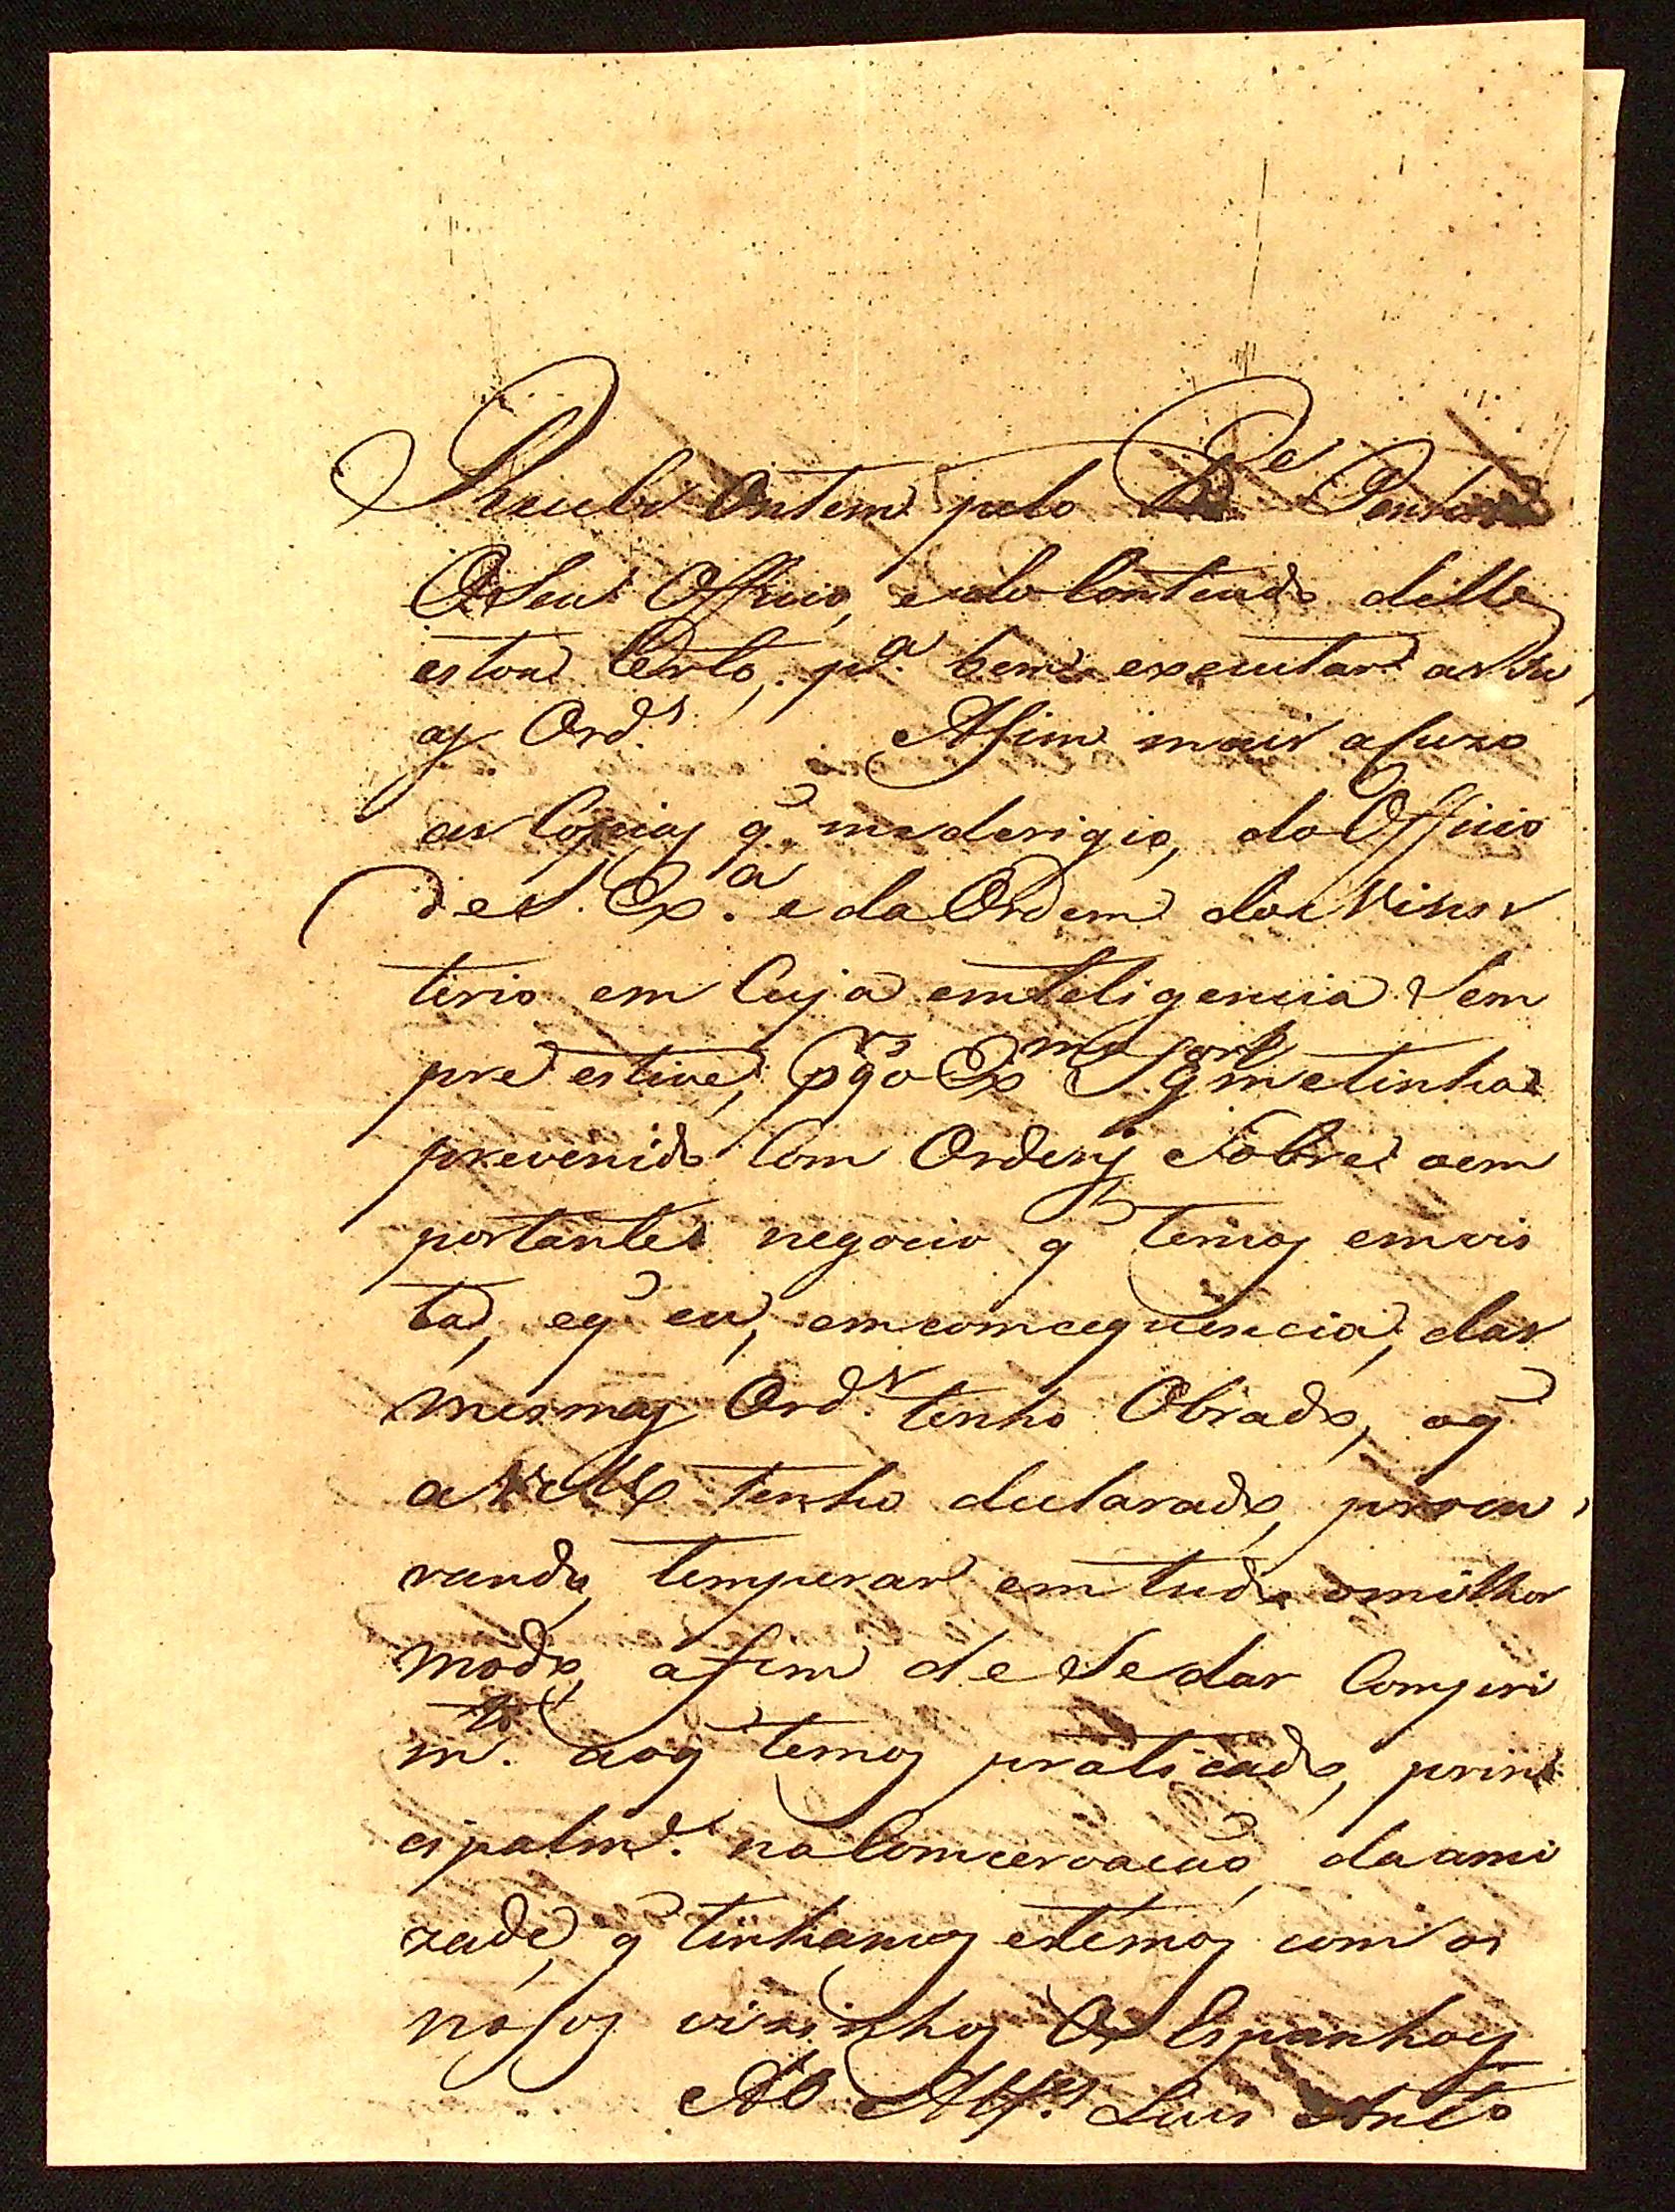 Recebi Ontem pelo P.e
O Seu Officio, e do Contiudo delle
estou Certo, p.a bem executar as su
as Ord.s Asim mais acuzo
as Copias q̃ me derigio, do Officio
de S. Ex.a e da Ordem do Menis
tirio em Cuja emteligencia Sem
pre estive, o Ex.mo q me tinha
prevenido Com Ordens Sobre aem
portante negocio q temos emvis
ta, eq̃ eu, emcomcequencia, das
mesmas Ord.s tenho Obrado, aq̃
a tenho declarado, procu
rando, temperar em tudo omilhor
modo, afim de Se dar Compri
m.to aoq̃ temos praticado, prin
cipalm.e na Comcervacaõ, da ami
zade, q̃ tinhamos etemos com os
nosos vizinhos Os Espanhoes
Ao Alf.es Luis Anto